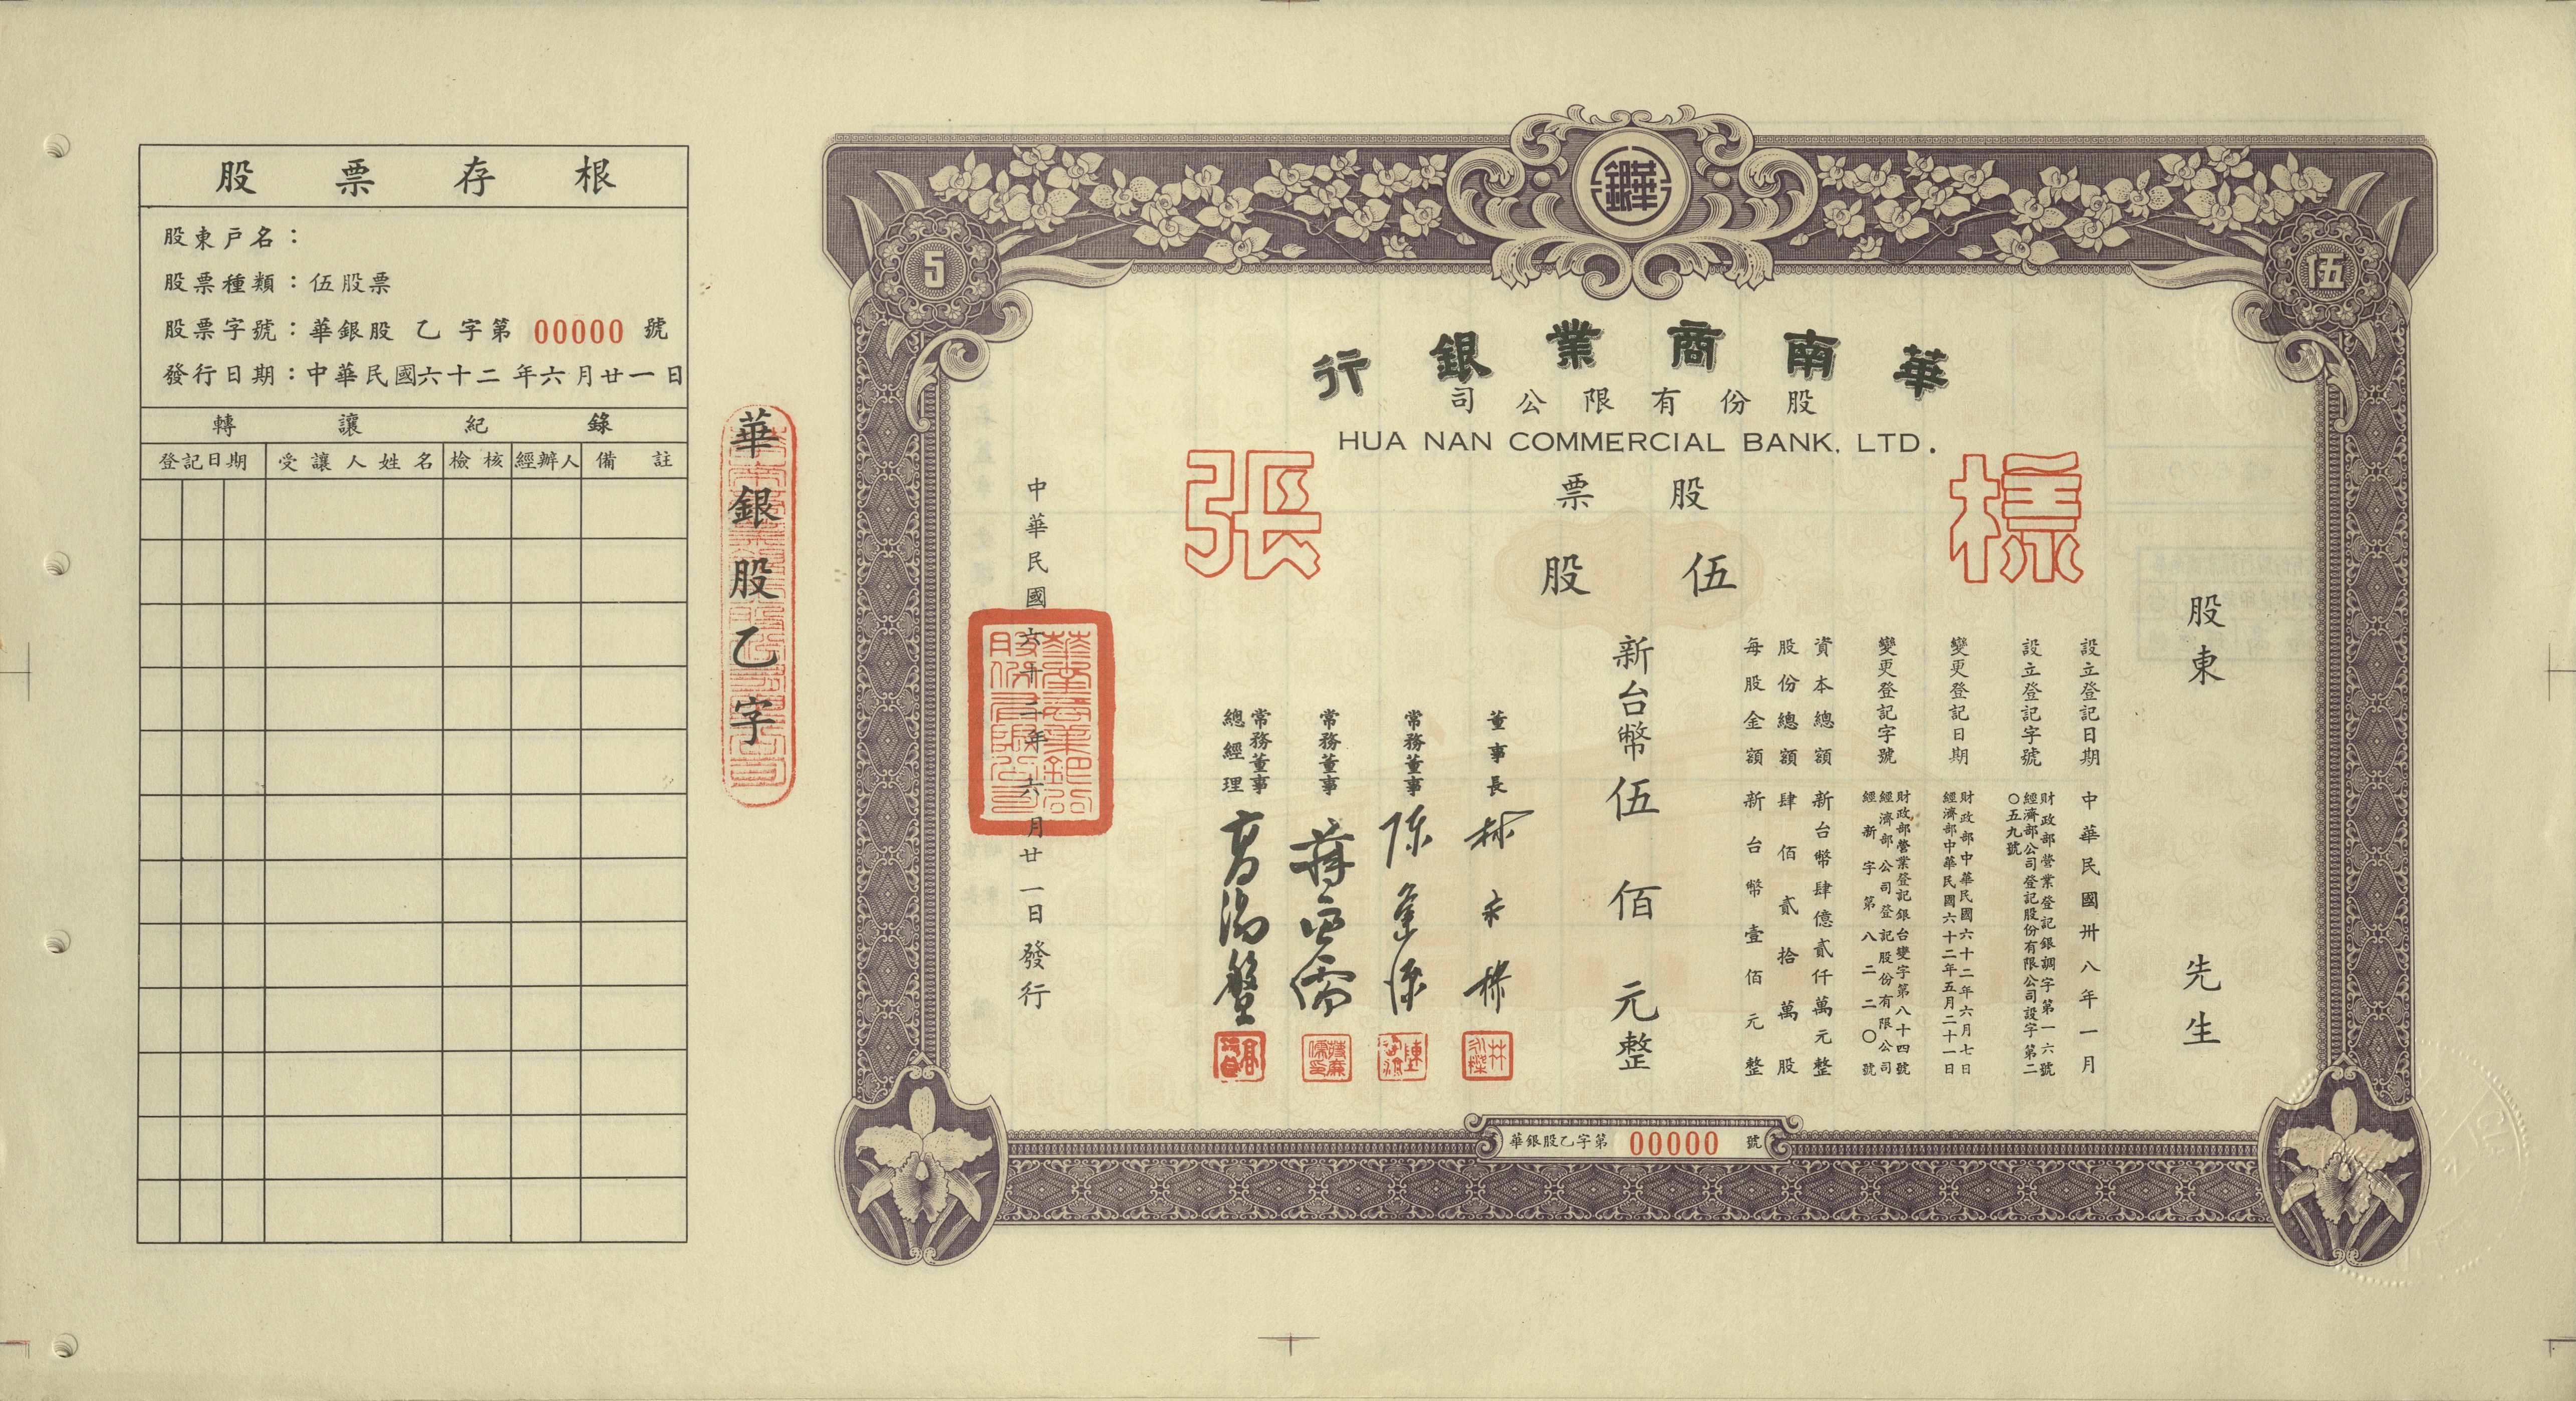 股票存根
股東戶名：
股票種類：伍股票
股票字號：華銀股 乙 字第 00000 號
發行日期：中華民國六十二年六月廿一日
轉讓紀錄
登記日期 受讓人姓名 檢核 經辦人 備註
華銀股乙字
5
銀華
伍
華南商業銀行
股份有限公司
HUA NAN COMMERCIAL BANK, LTD.
樣張
股票
伍股
股東 先生
設立登記日期 中華民國卅八年一月
設立登記字號 財政部營業登記銀調字第一六號
經濟部公司登記股份有限公司設字第二
〇五九號
變更登記日期 財政部中華民國六十二年六月七日
經濟部中華民國六十二年五月二十一日
變更登記字號 財政部營業登記銀台變字第八十四號
經濟部公司登記股份有限公司
經新字第八二二〇號
資本總額 新台幣肆億貳仟萬元整
股份總額 肆佰貳拾萬股
每股金額 新台幣壹佰元整
新台幣伍佰元整
董事長 林永樑
常務董事 陳逢源
常務董事
常務董事
總經理
中華民國六十二年六月廿一日發行
華南商業銀行股份有限公司
華銀股乙字第 00000 號